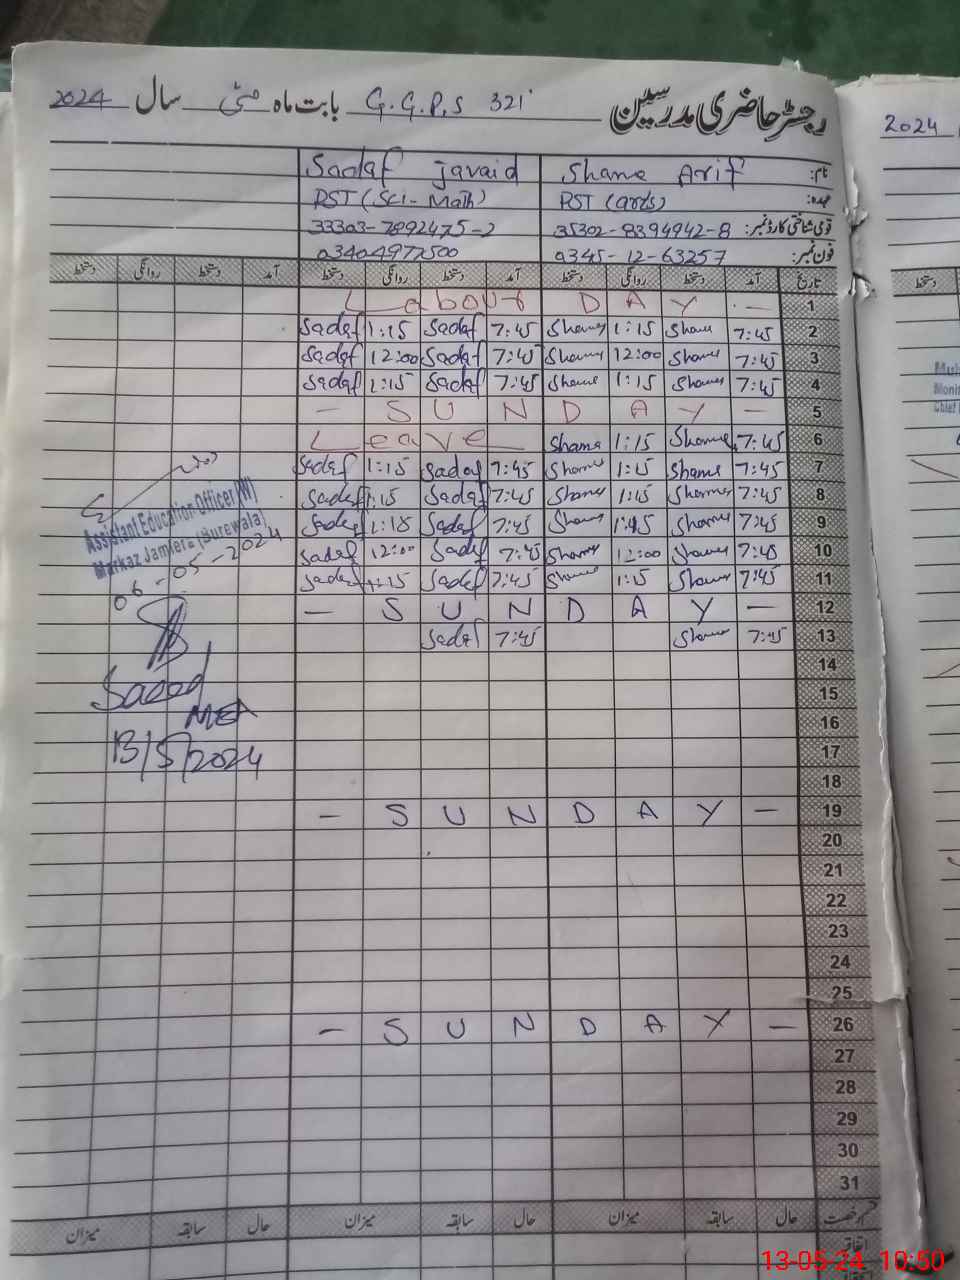 رجسٹر حاضری مدرسین G.G.P.S 321 بابت ماہ مئی سال 2024
نام: Shama Arif Sadaf javaid
عہدہ: PST (arts) PST (Sci-Math)
قومی شناختی کارڈ نمبر: 35302-8394942-8 33303-7892475-2
فون نمبر: 0345-12-63257 03404977500
تاریخ آمد دستخط روانگی دستخط آمد دستخط روانگی دستخط آمد دستخط روانگی دستخط
1 Labour DAY -
2 7:45 Shama 1:15 Shama 7:45 Sadaf 1:15 Sadaf
3 7:45 Shama 12:00 Shama 7:45 Sadaf 12:00 Sadaf
4 7:45 Shama 1:15 Shama 7:45 Sadaf 1:15 Sadaf
5 - SUNDAY -
6 7:45 Shama 1:15 Shama Leave
7 7:45 Shama 1:15 Shama 7:45 Sadaf 1:15 Sadaf
8 7:45 Shama 1:15 Shama 7:45 Sadaf 1:15 Sadaf
9 7:45 Shama 1:15 Shama 7:45 Sadaf 1:15 Sadaf
10 7:45 Shama 12:00 Shama 7:45 Sadaf 12:00 Sadaf
11 7:45 Shama 1:15 Shama 7:45 Sadaf 1:15 Sadaf
12 - SUNDAY -
13 7:45 Shama 7:45 Sadaf
14
15
16
17
18
19 - SUNDAY -
20
21
22
23
24
25
26 - SUNDAY -
27
28
29
30
31
قسم رخصت حال سابقہ میزان حال سابقہ میزان حال سابقہ میزان
اتفاقیہ
Assistant Education Officer (W)
Markaz Jamlera (Burewala)
06-05-2024
Saeed
MEA
13/5/2024
2024
دستخط
13-05-24 10:50